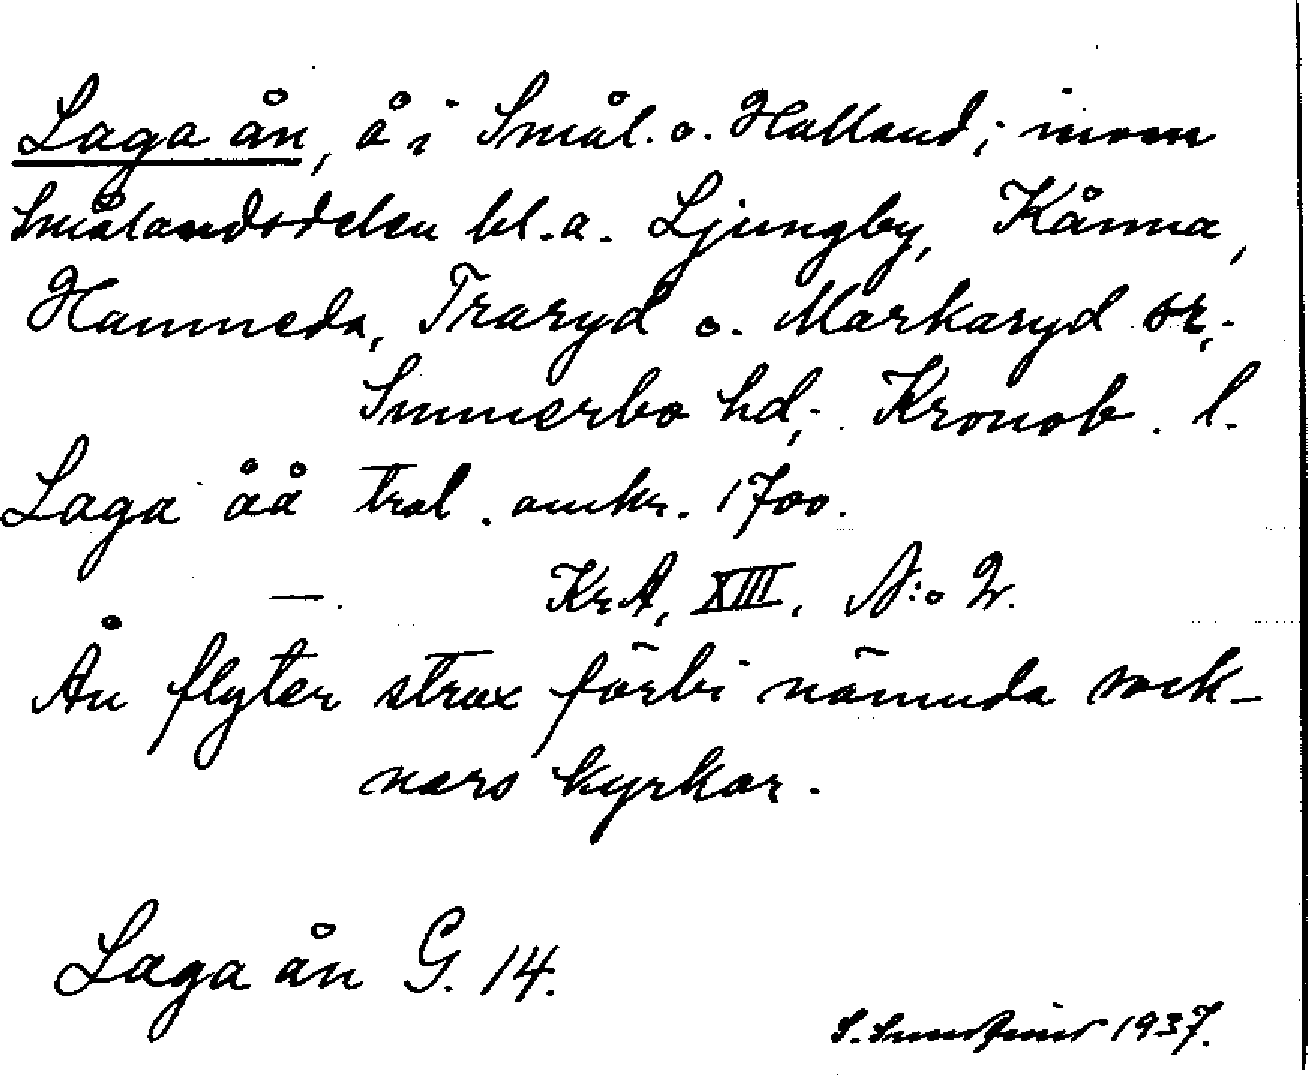 Laga ån, å i Smål. o. Halland; inom
Smålandsdelen bl.a. Ljungby, Kånna,
Hamneda, Traryd o. Markaryd sr,
Sunnerbo hd, Kronob. l.
Laga åå tral. omkr. 1700.
— . KrA, XIII, N:o 2.
Ån flyter strax förbi nämnda sock-
nars kyrkor.
Laga ån G. 14.
S. 1937.